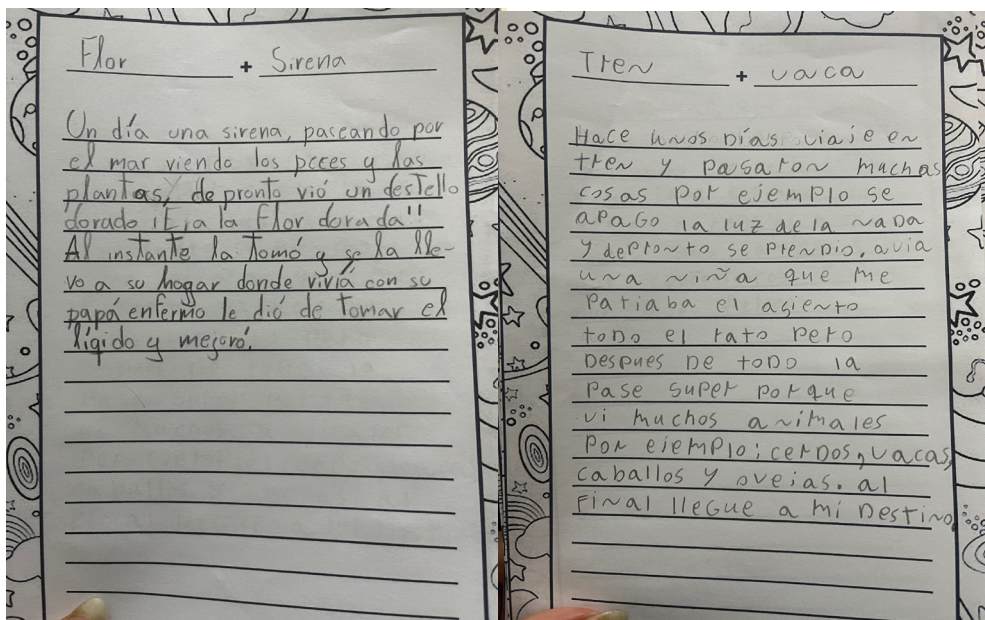 Flor + Sirena
Un día una sirena, paceando por
el mar viendo los peces y las
plantas, de pronto vió un destello
dorado ¡Era la flor dorada!!
Al instante la tomó y se la lle-
vo a su hogar donde vivía con su
papá enfermo le dió de tomar el
líqido y mejoró.
Tren + vaca
Hace unos Días viaje en
tren y pasaron muchas
cosas por ejemplo se
apago la luz de la nada
y depronto se prendio. avia
una niña que me
patiaba el asiento
todo el rato pero
Despues De todo la
pase super porque
vi muchos animales
por ejemplo; cerdos, vacas,
caballos y ovejas. al
Final llegue a mi Destino